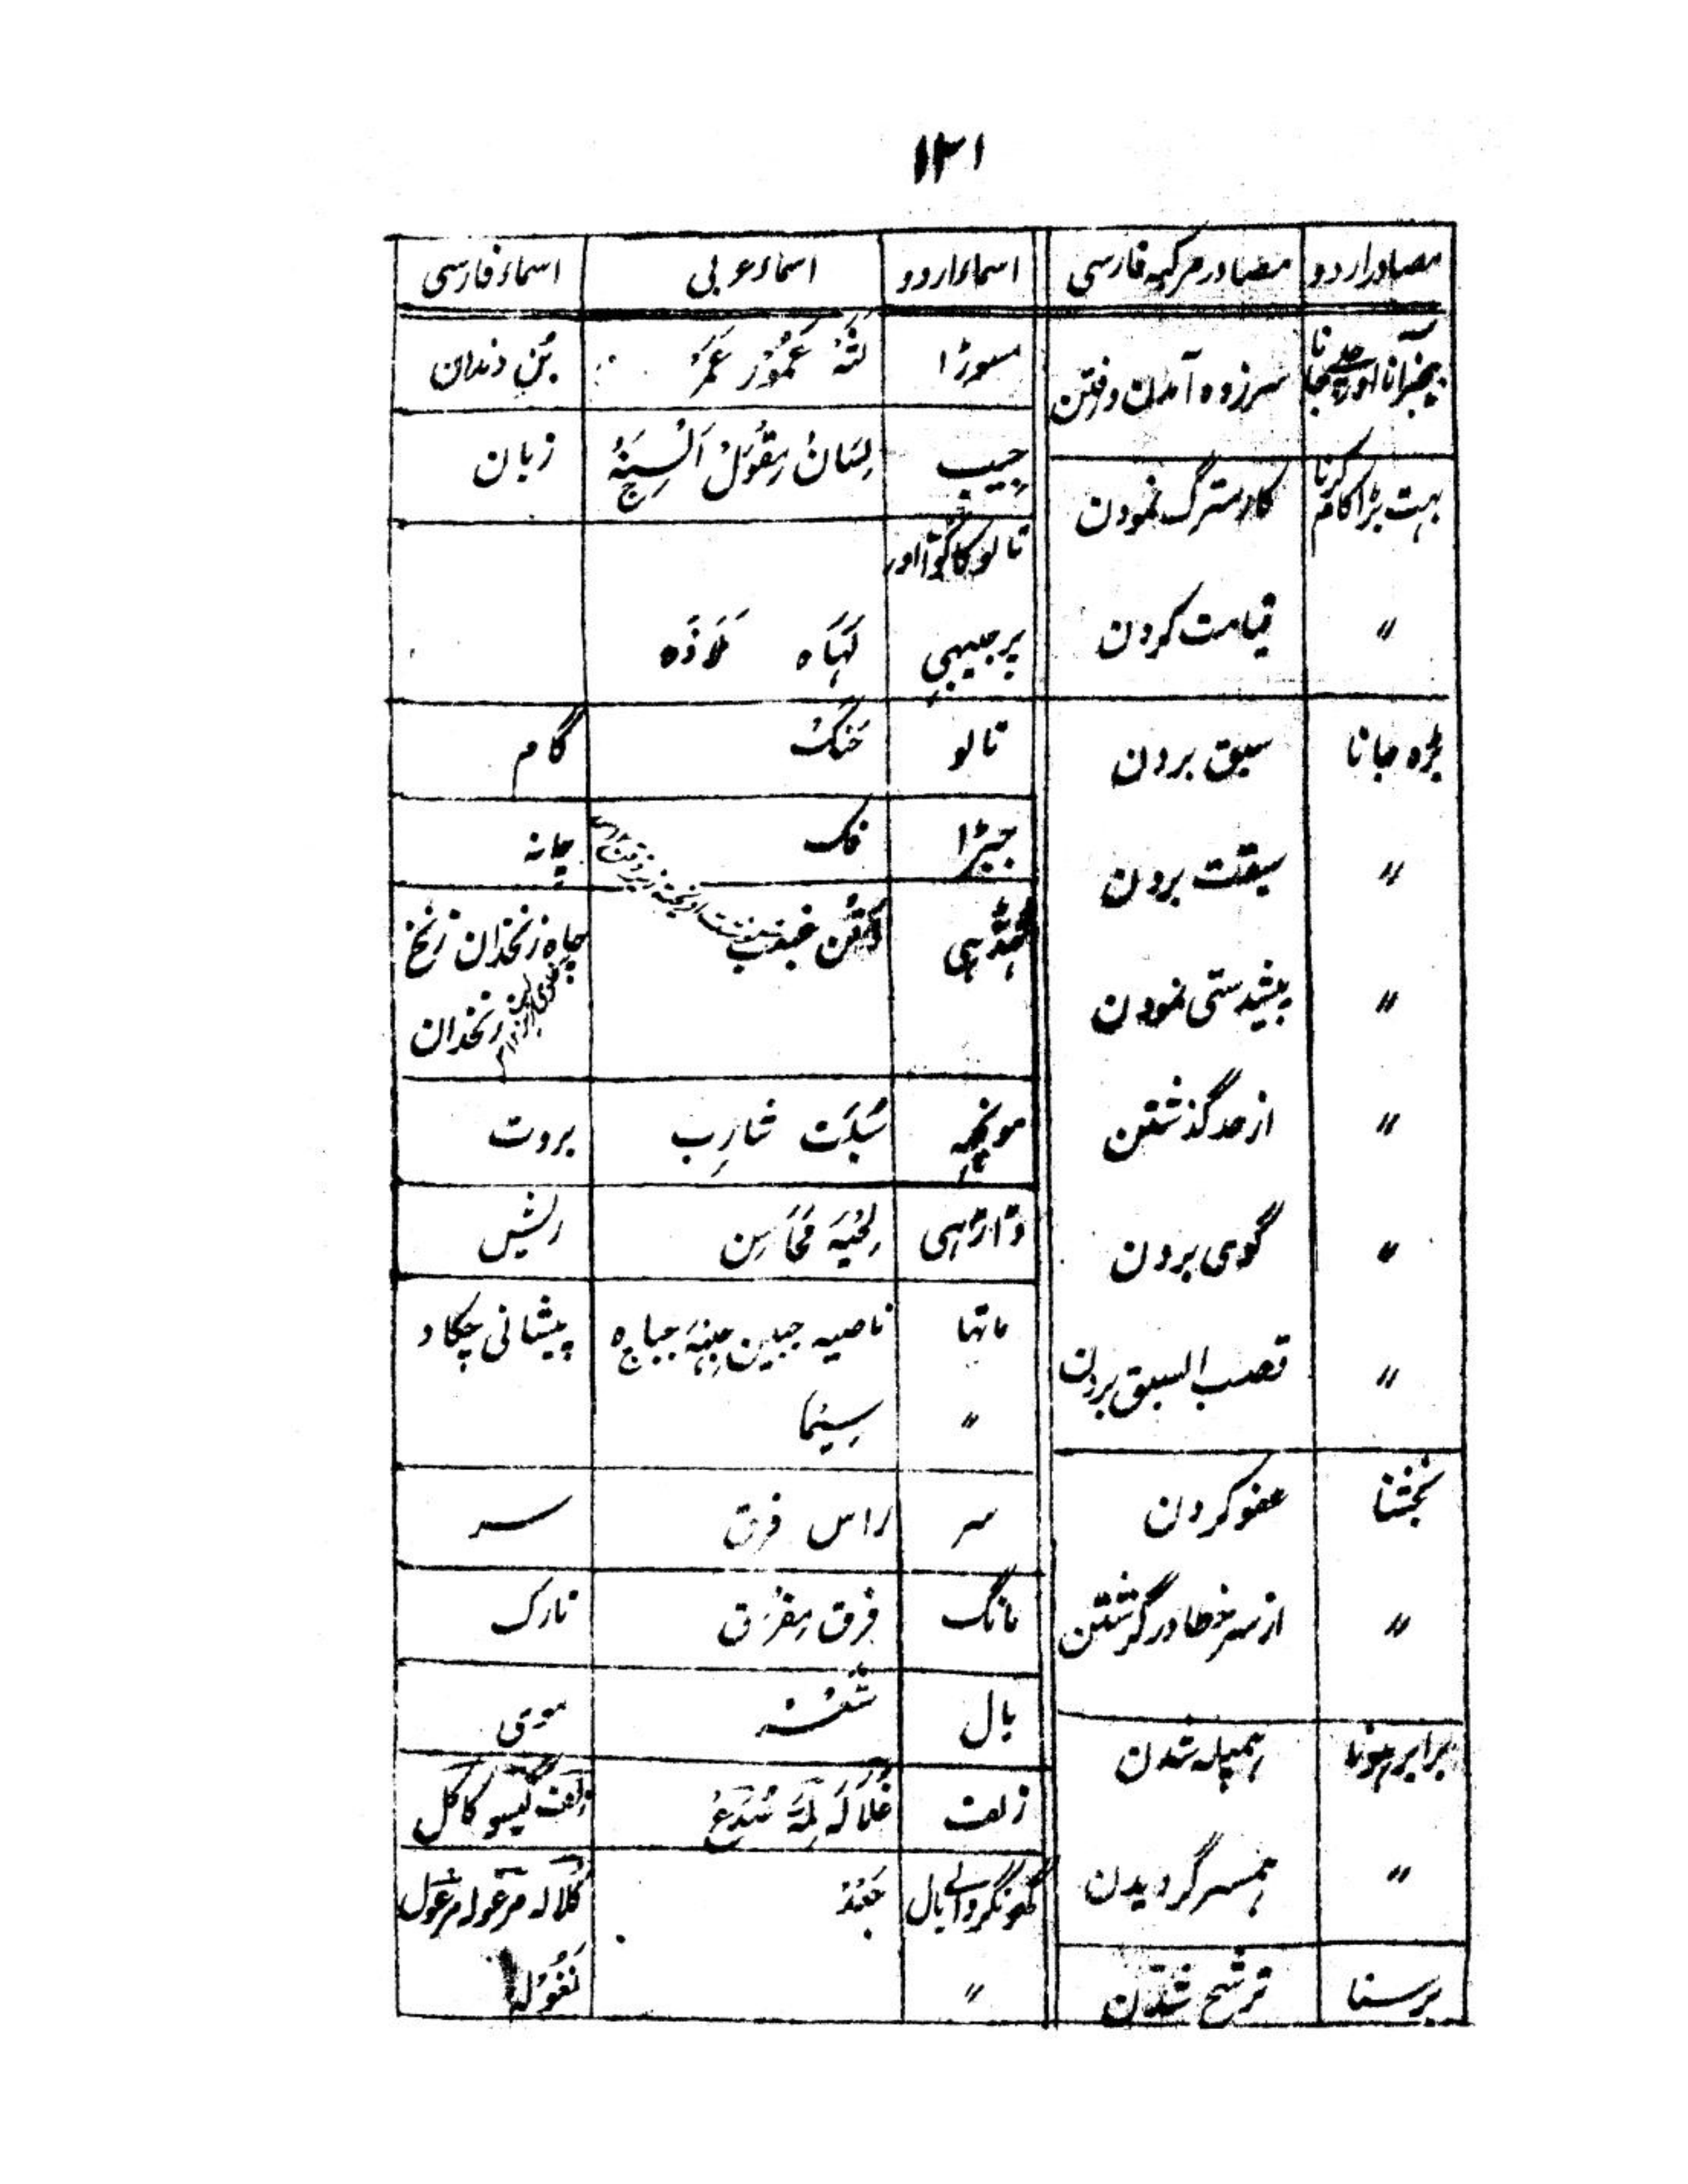 ۱۲۱
مصادر اردو | مصادر مرکبہ فارسی | اسماء اردو | اسماء عربی | اسماء فارسی
سرزدہ آمدن و رفتن
بہت بڑا کام کرنا | کار سترگ نمودن
〃 | قیامت کردن
بڑہ جانا | سبق بردن
〃 | سبقت بردن
〃 | پیشدستی نمودن
〃 | از حد گذشتن
〃 | گوی بردن
〃 | قصب السبق بردن
بخشنا | عفو کردن
〃 | از سر خطا در گزشتن
برابر ہونا | ہمپلہ شدن
〃 | ہمسر گردیدن
برسنا | ترشح شدن
مسوڑا | لثہ عمور عمر | بن دندان
جیب | لسان مقول السنہ ج | زبان
تالو کا کوّا اور
پر جیبہی | لہاہ ملاذہ
تالو | حنک | کام
جبڑا | فک | چانہ
ذقن غبغب | چاہ زنخدان زنخ
زنخدان
مونچہہ | سبلت شارب | بروت
ڈاڑہی | لحیہ محاسن | ریش
ماتہا | ناصیہ جبین جبہہ جباہ | پیشانی چکاد
〃 | سیما
سر | راس فرق | سر
مانگ | فرق مفرق | تارک
بال | موی
زلف | غلالہ لمہ صدغ | زلف گیسو کاکل
گہونگروالے بال | جعد | کلالہ مرغولہ مرغول
〃 | نغولہ